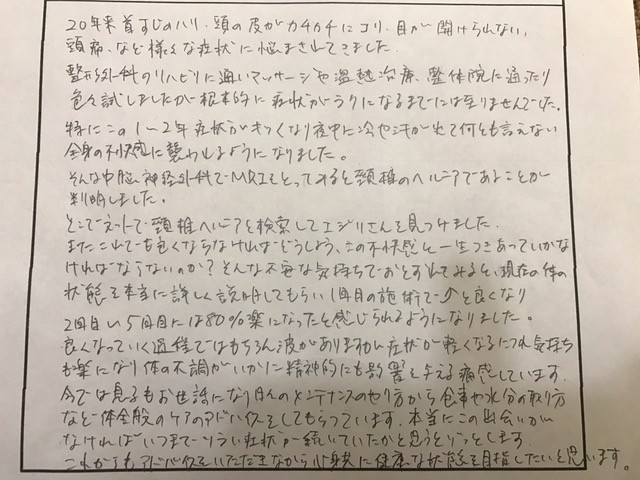 20年来首すじのハリ、頭の皮がカチカチにコリ、目が開けられない、
頭痛、など様々な症状に悩まされてきました。
整形外科のリハビリに通いマッサージや温熱治療、整体院に通ったり
色々試しましたが根本的に症状がラクになるまでには至りませんでした。
特にこの1〜2年症状がキツくなり夜中に冷や汗が出て何とも言えない
全身の不快感に襲われるようになりました。
そんな中脳神経外科でMRIをとってみると頸椎のヘルニアであることが
判明しました。
そこでネットで頸椎ヘルニアを検索してエジリさんを見つけました。
またこれでも良くならなければどうしよう、この不快感と一生つきあっていかな
ければならないのか?そんな不安な気持ちでおとずれてみると、現在の体の
状態を本当に詳しく説明してもらい1回目の施術で↗と良くなり
2回目い5回目には80%楽になったと感じられるようになりました。
良くなっていく過程ではもちろん波がありますが症状が軽くなるにつれ気持ち
も楽になり体の不調がいかに精神的にも影響を与える痛感しています。
今では息子もお世話になり日々のメンテナンスのやり方から食事や水分の取り方
など体全般のケアのアドバイスをしてもらっています。本当にこの出会いが
なければいつまでツラい症状が続いていたかと思うとゾッとします。
これからもアドバイスをいただきながら心身共に健康な状態を目指したいと思います。